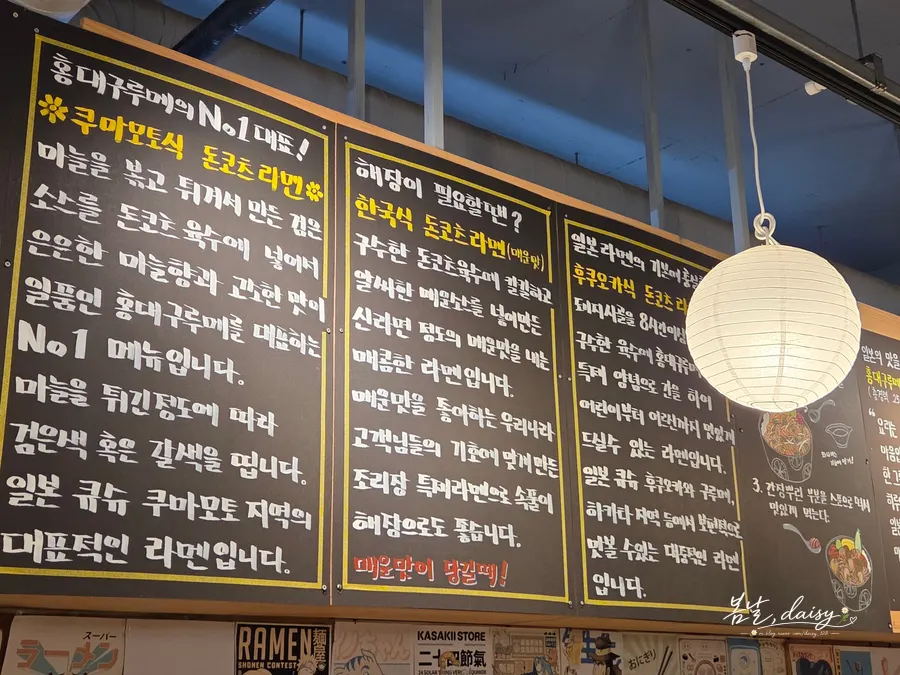 홍대구루메의 No1 대표!
쿠마모토식 돈코츠 라멘
마늘을 볶고 튀겨서 만든 검은
소스를 돈코츠 육수에 넣어서
은은한 마늘향과 고소한 맛이
일품인 홍대구루메를 대표하는
No1 메뉴입니다.
마늘을 튀긴정도에 따라
검은색 혹은 갈색을 띱니다.
일본 큐슈 쿠마모토 지역의
대표적인 라멘입니다.
해장이 필요할땐?
한국식 돈코츠라멘(매운맛)
구수한 돈코츠육수에 칼칼하고
알싸한 매운소스를 넣어만든
신라면 정도의 매운맛을 내는
매콤한 라멘입니다.
매운맛을 좋아하는 우리나라
고객님들의 기호에 맞게 만든
조리장 특제라멘으로 술풀이
해장으로도 좋습니다.
매운맛이 당길때!
일본라멘의 기본에 충실
후쿠오카식 돈코츠
돼지사골을 8시간이상
구수한 육수에 홍대구루메
특제 양념으로 간을 하여
어린이부터 어른까지 맛있게
드실수 있는 라멘입니다.
일본 큐슈 후쿠오카와 구루메,
하카타 지역 등에서 보편적으로
맛볼 수있는 대중적인 라멘
입니다.
3. 간장뿌린 부분을 스푼으로 떠서
맛있게 먹는다.
일본의 맛을
홍대구루메
スーパー
ラーメン
RAMEN 麺屋
SHONEN CONTEST
KASAKII STORE
二十四節氣
おにぎり
봄날, daisy